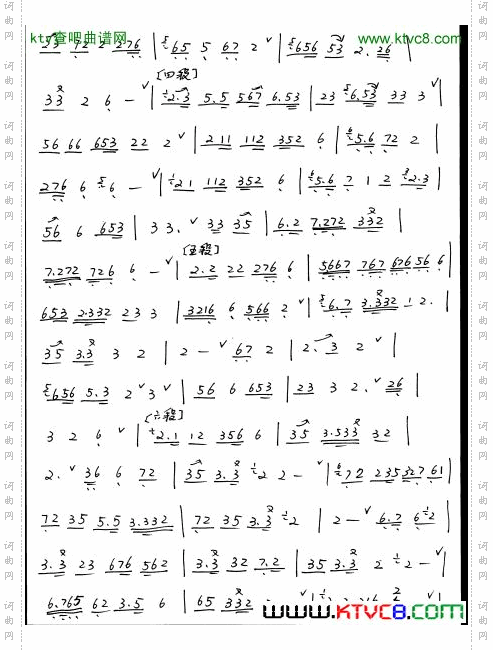 kty查吧曲谱网 www.ktvc8.com
23 72 2 276 | 65 5 67 2 ˅ | 656 53 2. 26 |
[四段]
33 2 6 - ˅ | 2.3 5.5 567 6.53 | 23 6.53 33 3 ˅ |
56 66 653 22 2 ˅ | 211 112 352 6 | 5.6 72 2 |
276 6 6 - ˅ | 21 112 352 6 | 5.6 7 1 2 2.3 |
56 6 653 | 33. ˅ 33 35 | 6.2 7.272 332 |
[五段]
7.272 726 6 - ˅ | 2.2 22 276 6 | 5667 767 676 56 6 |
653 2.332 23 3 | 3216 6 566 2 ˅ | 6.7 3.332 1 2. |
35 3.3 3 2 | 2 - ˅ 67 2 | 2. 3 2 ˅ |
656 5.3 2 ˅ 3 ˅ | 56 6 653 | 23 3 2. ˅ 26 |
[六段]
3 2 6 ˅ | 2.1 12 356 6 | 35 3.533 32 |
2. ˅ 36 6 72 | 35 3.3 2 2 - ˅ | 72 235 327 61 |
72 35 5.5 3.332 | 72 35 3.3 2 | 2 - ˅ 6.7 6 2 |
3.3 23 676 562 | 3.3 32 7.2 | 35 3.3 2 2 - ˅ |
6.765 62 3.5 6 | 65 332
www.KTVC8.com